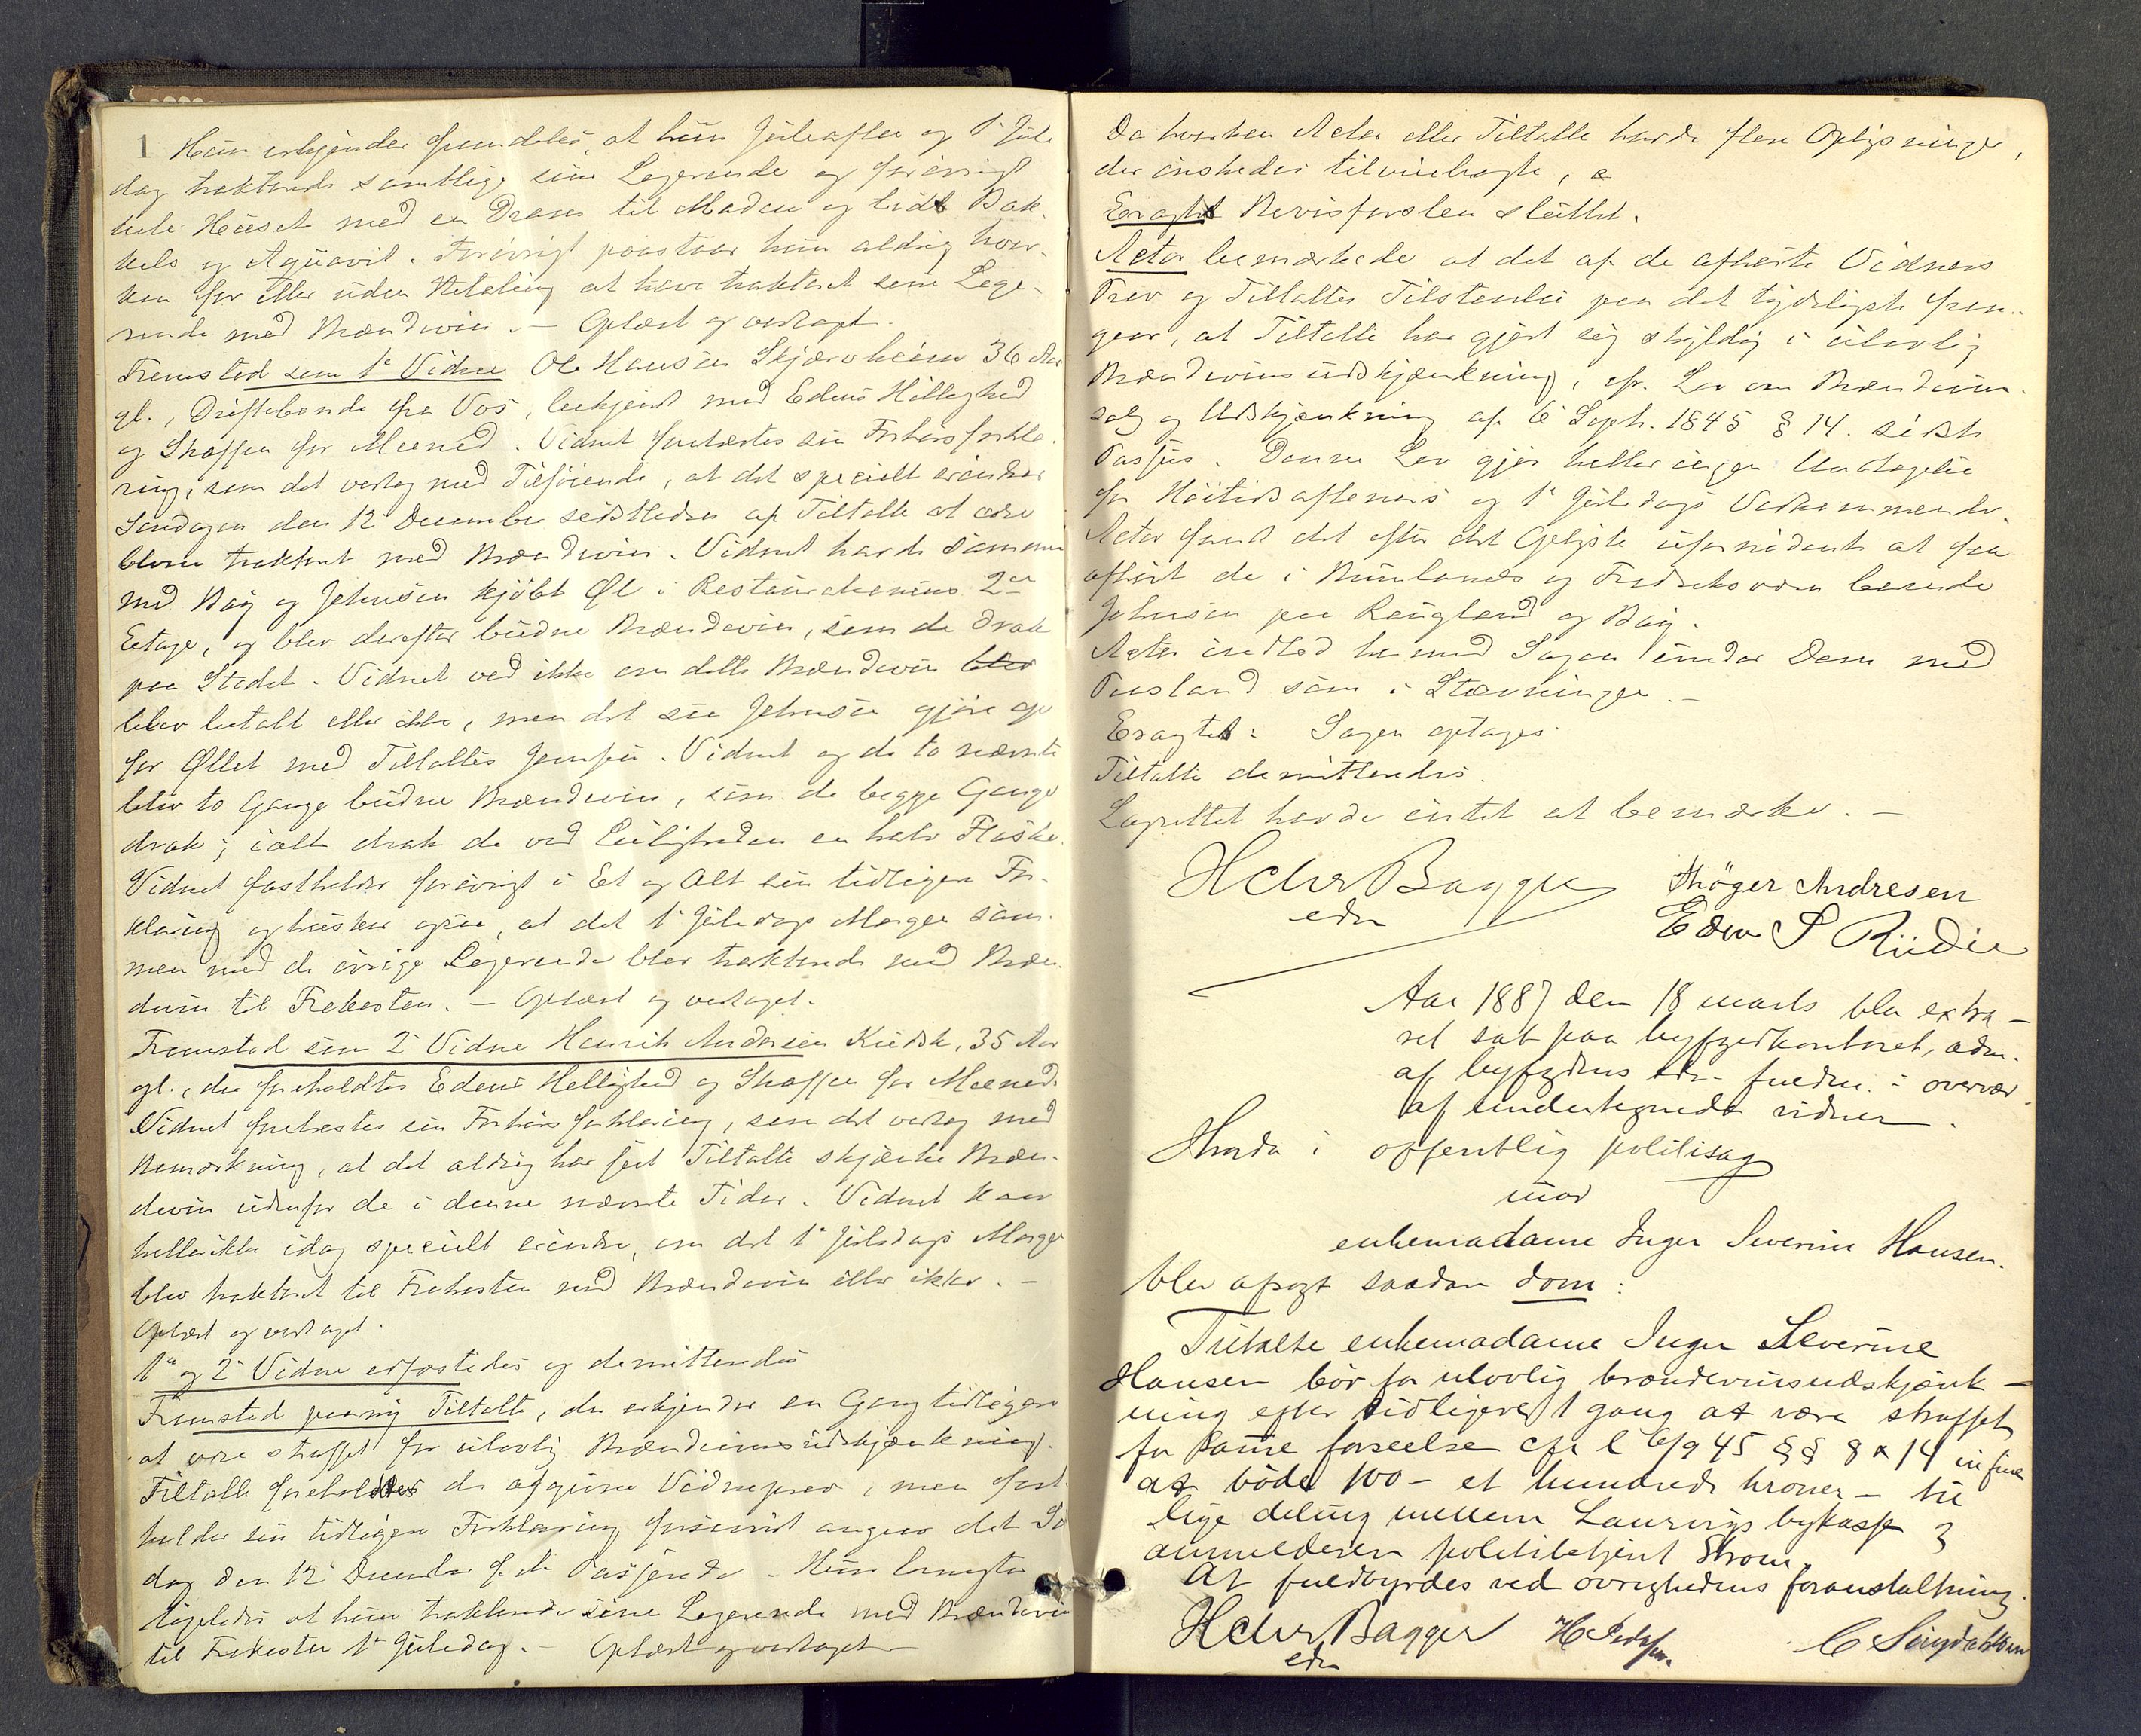 1
Hun erkjender fremdeles, at hun Juleaften og 1ste Jule
dag trakterede samtlige sine Logerende og forøvrigt
hele Huset med en Dram til Maden og lidt Bak-
kels og Aquavit. Forøvrigt paastaar hun aldrig hver-
ken for eller uden Betaling at have trakteret sine Loge-
rende med Brændevin. – Oplæst og vedtaget.
Fremstod som 1ste Vidne Ole Hansen Skjærvheim 36 Aar
gl., Driftebonde fra Vos, bekjendt med Edens Hellighed
og Straffen for Meened. Vidnet forelæstes sin Forhørsforkla-
ring, som det vedtog med Tilføiende, at det specielt erindrer
Søndagen den 12 December sidstleden af Tiltalte at være
bleven trakteret med Brændevin. Vidnet havde sammen
med Bøy og Johnsen kjøbt Øl i Restaurationens 2den
Etage, og blev derefter buden Brændevin, som de drak
paa Stedet. Vidnet ved ikke om dette Brændevin blev
blev betalt eller ikke, men det saa Johnsen gjøre op
for Øllet med Tiltaltes Jomfru. Vidnet og de to nævnte
blev to Gange budne Brændevin, som de begge Gange
drak; ialt drak de ved Leiligheden en halv Flaske.
Vidnet fastholder forøvrigt i Et og Alt sin tidligere For-
klaring og husker ogsaa, at det 1ste Juledags Morgen sam-
men med de øvrige Logerende blev trakterede med Bræn-
devin til Frokosten. – Oplæst og vedtaget.
Fremstod som 2det Vidne Henrik Andersen 35 Aar
gl., der foreholdtes Edens Hellighed og Straffen for Meened.
Vidnet forelæstes sin Forhørsforklaring, som det vedtog med
Bemærkning, at det aldrig har seet Tiltalte skjænke Bræn-
devin udenfor de i denne nævnte Tider. Vidnet kan
heller ikke idag specielt erindre, om det 1ste Juledags Morgen
blev trakteret til Frokosten med Brændevin eller ikke. –
Oplæst og vedtaget.
1ste og 2det Vidne edfæstedes og demitteredes
Fremstod paany Tiltalte, der erkjender en Gang tidligere
at være straffet for ulovlig Brændevinsudskjænkning.
Tiltalte foreholdtes de afgivne Vidneprov, men fast-
holder sin tidligere Forklaring forsaavidt angaar det Søn
dag den 12 December f. A. Passerede. Hun benægter
ligeledes at have trakterede sine Logerende med Brændevin
til Frokosten 1ste Juledag. – Oplæst og vedtaget –
Da hverken Actor eller Tiltalte havde flere Oplysninger,
der ønskedes tilveiebragte,
Eragtet Bevisførslen sluttet.
Actor bemærkede at det af de afhørte Vidners
Prov og Tiltaltes Tilstaaelse paa det tydeligste frem-
gaar, at Tiltalte har gjort sig skyldig i ulovlig
Brændevinsudskjænkning, cfr. Lov om Brændevins-
salg og Udskjænkning af 6 Septr. 1845 § 14. sidste
Passus. Denne Lov gjør heller ingen Undtagelse
for Høitidsaftenens og 1ste Juledags Vedkommende.
Actor fandt det efter det Oplyste ufornødent at faa
afhørt de i Brunlanæs og Fredriksværn boende
Johnsen paa Rougland og Bøy.
Actor indlod hermed Sagen under Dom med
Paastand som i Stævningen. –
Eragtet: Sagen optages.
Tiltalte demitteredes.
Lagrettet havde intet at bemærke. –
H Chr Bagger
edsv
Thøger Andresen
Edv. S Rüdie
Aar 1887 den 18 marts blev extra-
ret sat paa byfogedkontoret, adm.
af byfogdens edsv. fuldm. i overvær
af undertegnede vidner.
Hvorda i offentlig politisag
mod
enkemadame Inger Severine Hansen.
blev afsagt saadan dom:
Tiltalte enkemadame Inger Severine
Hansen bør for ulovlig brændevinsudskjænk-
ning efter tidligere 1 gang at være straffet
for samme forseelse cfr l 6/9 45 §§ 8 & 14 in fine
at bøde 100 – et hundrede kroner – til
lige deling mellem Laurvigs bykasse og
anmelderen politibetjent Strøm.
At fuldbyrdes ved øvrighedens foranstaltning.
H Chr Bagger
edsv
H Pedersen